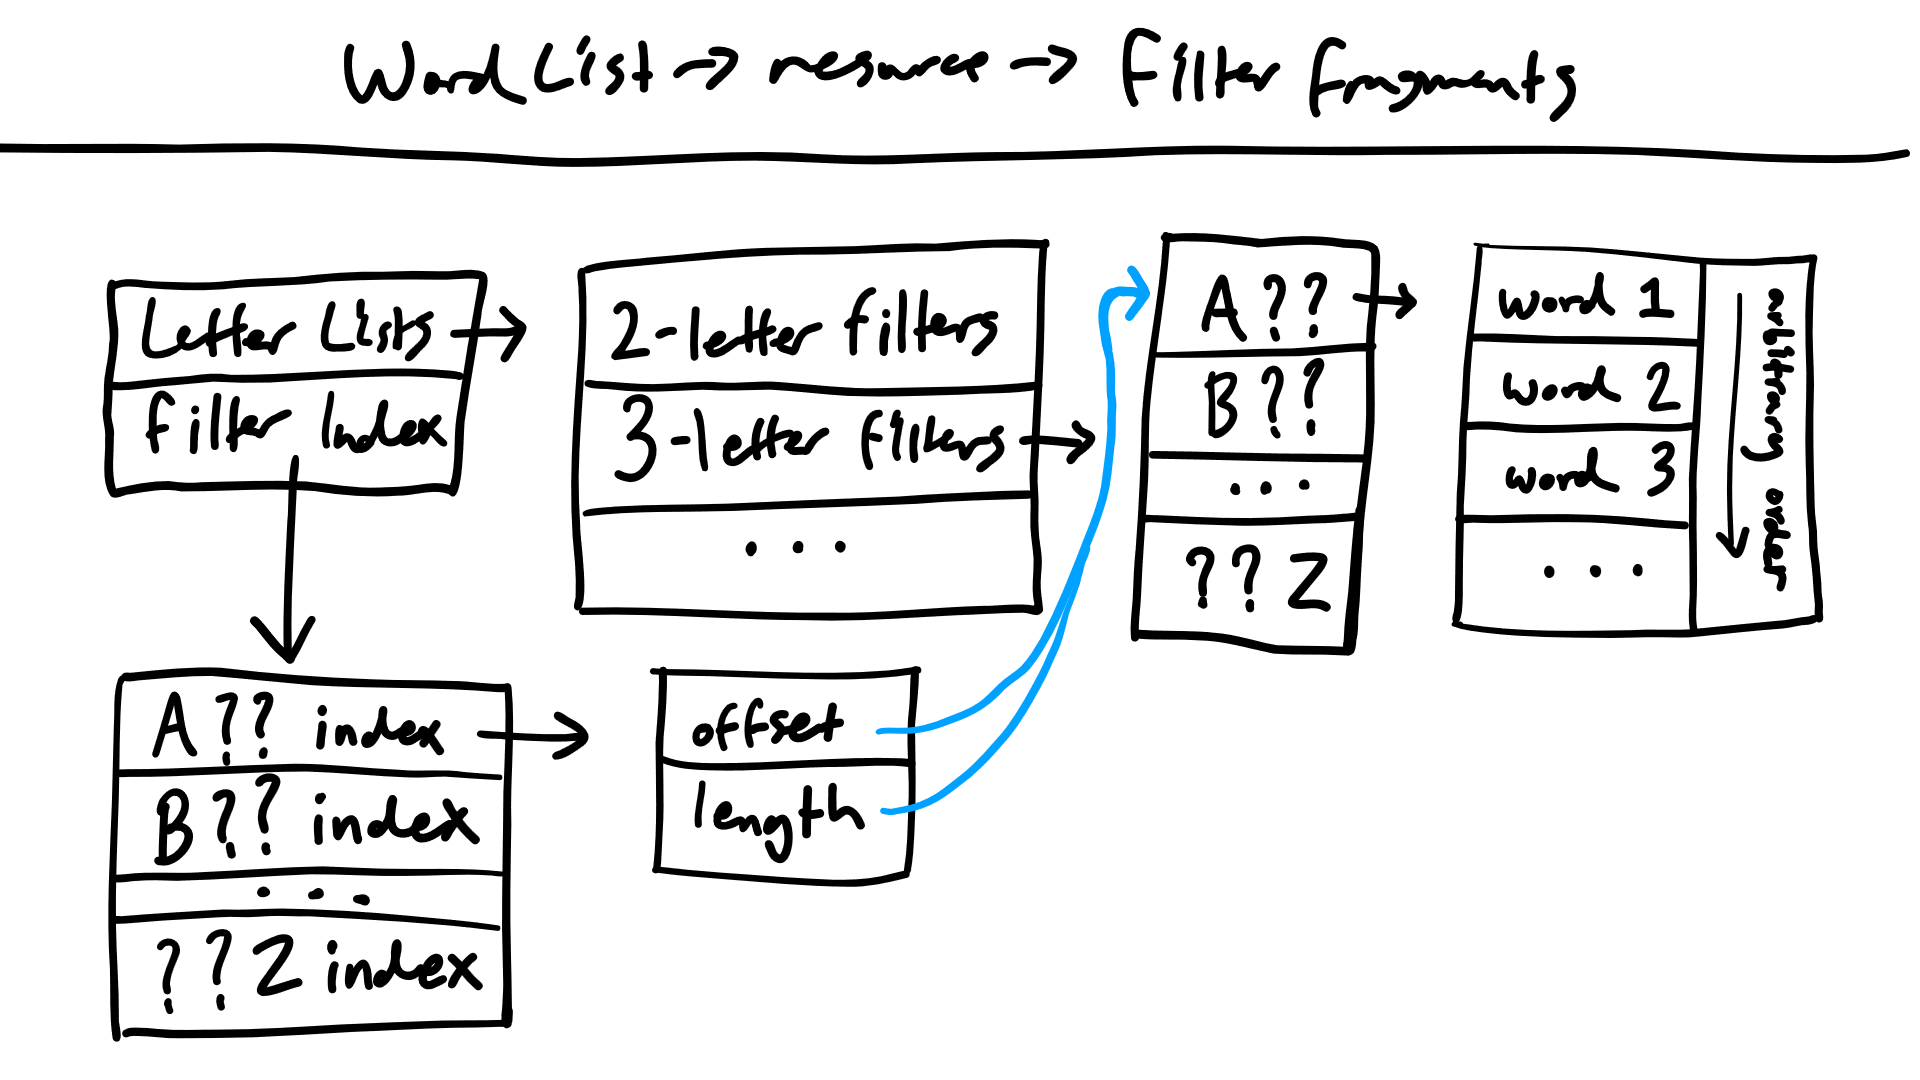 Word List → resource → Filter Fragments
Letter Lists
Filter Index
2-letter filters
3-letter filters
...
A ? ?
B ? ?
...
? ? Z
word 1
word 2
word 3
...
arbitrary order
A ? ? index
B ? ? index
...
? ? Z index
offset
length